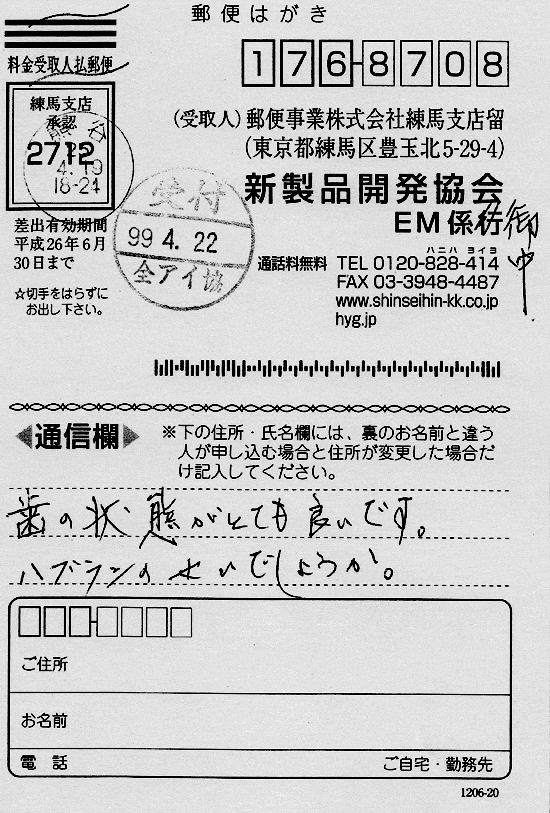 郵便はがき
料金受取人払郵便
練馬支店
承認
2712
熊谷
4.19
18-24
差出有効期間
平成26年6月
30日まで
☆切手をはらずに
お出し下さい。
176-8708
(受取人)郵便事業株式会社練馬支店留
(東京都練馬区豊玉北5-29-4)
新製品開発協会
EM係行御中
受付
99 4. 22
全アイ協
ハニハ ヨイヨ
通話料無料 TEL 0120-828-414
FAX 03-3948-4487
www.shinseihin-kk.co.jp
hyg.jp
通信欄
※下の住所・氏名欄には、裏のお名前と違う
人が申し込む場合と住所が変更した場合だ
け記入してください。
歯の状態がとても良いです。
ハブランのせいでしょうか。
ご住所
お名前
電話 ご自宅・勤務先
1206-20